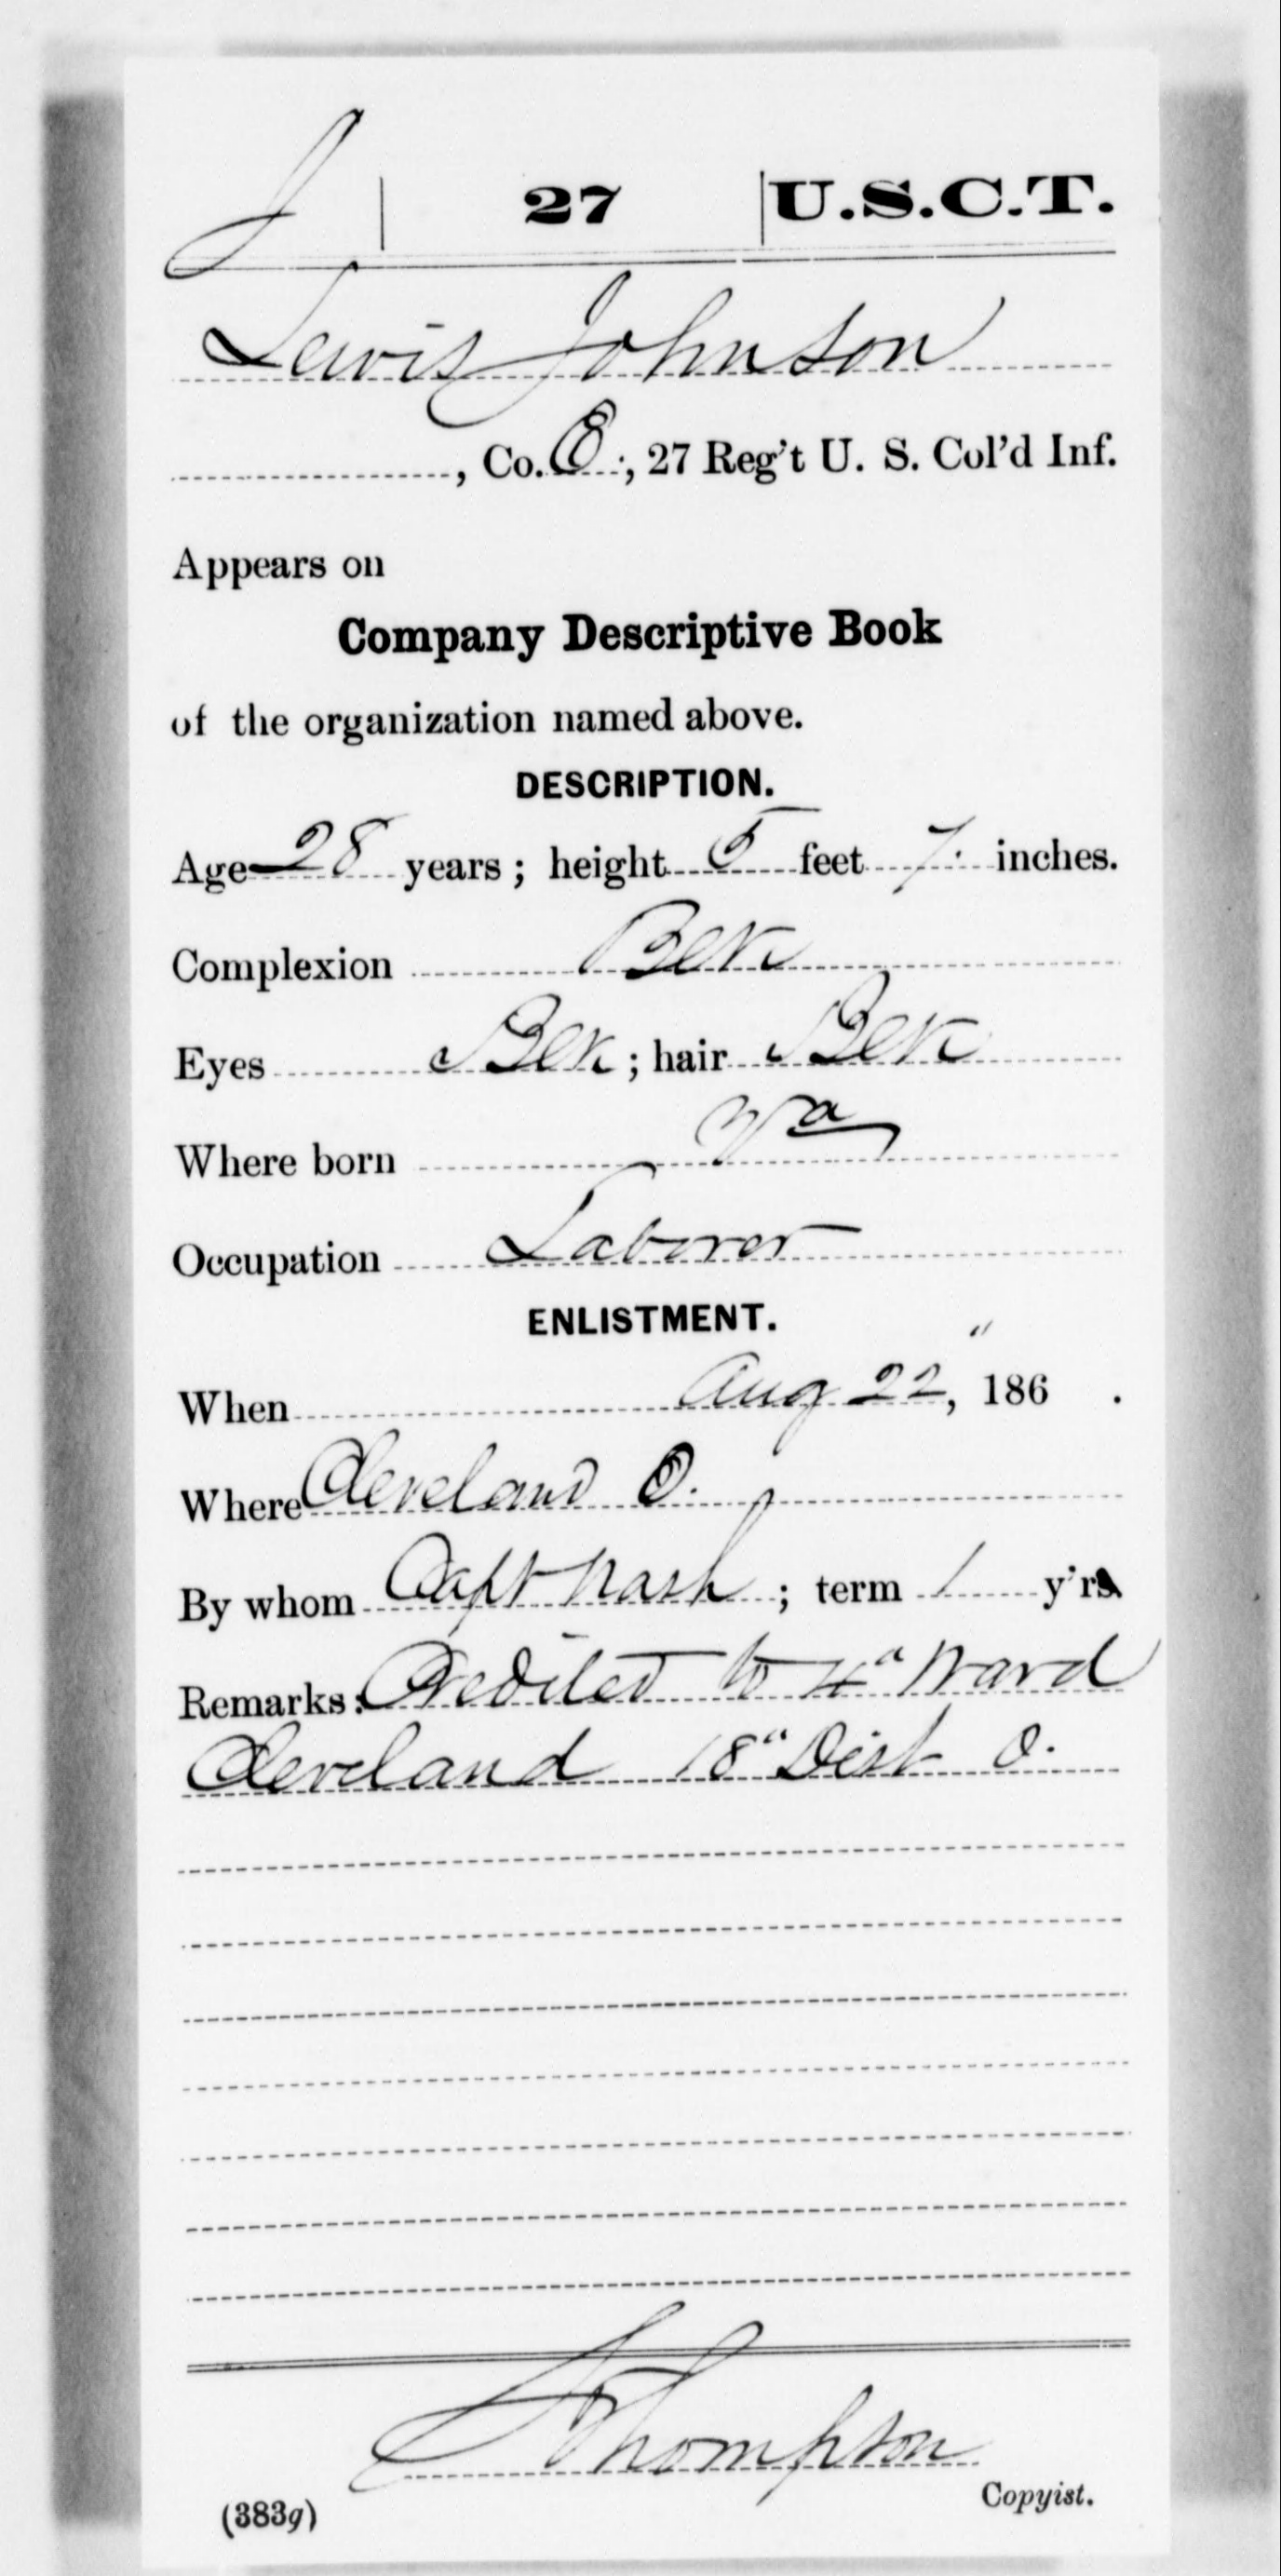 J | 27 | U.S.C.T.
Lewis Johnson
, Co. E., 27 Reg't U. S. Col'd Inf.
Appears on
Company Descriptive Book
of the organization named above.
DESCRIPTION.
Age 28 years ; height 5 feet 7. inches.
Complexion Blk
Eyes Blk ; hair Blk
Where born Va
Occupation Laborer
ENLISTMENT.
When Aug 22, " 186 .
Where Cleveland O.
By whom Capt Nash ; term 1 y'rs.
Remarks: Credited to 4" Ward
Cleveland 18" Dist O.
Thompson
(383g) Copyist.